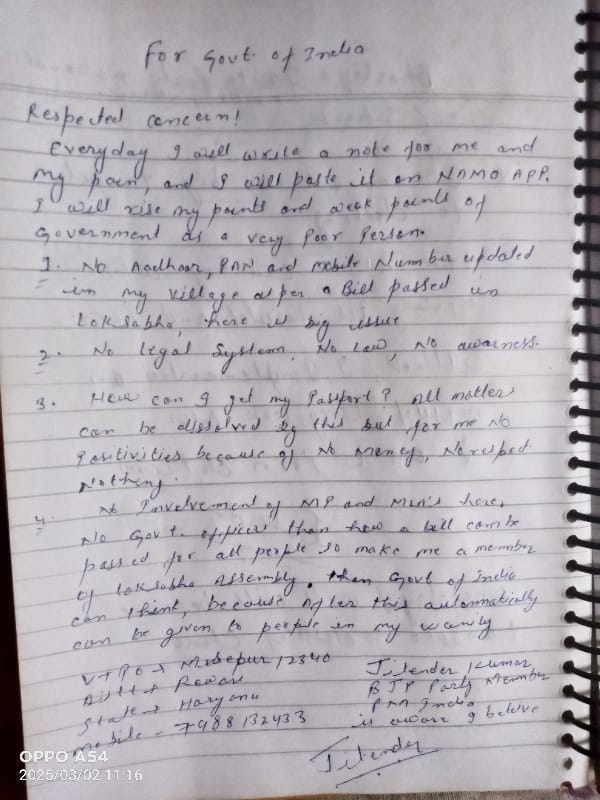 For Govt of India
Respected concern!
Everyday I will write a note for me and
my pain, and I will paste it on NAMO APP.
I will rise my points and weak points of
Government as a very Poor Person.
1. No Aadhaar, PAN and mobile Number updated
in my village as per a Bill passed in
Loksabha, here is big issue
2. No legal System, No Law, No awarness.
3. How can I get my Passport? All matters
can be dissolved by this but for me No
Positivities because of No Money, No respect
Nothing.
4. No Involvement of MP and MLA's here,
No Govt. officer than how a bill can be
passed for all people so make me a member
of Loksabha Assembly. than Govt of India
can think, because After this automatically
can be given to people in my
V+PO → 12340
Distt →
State → Haryana
Mobile - 7988132433
Jitender Kumar
BJP Party Member
PM India
is aware I beleve
Jitender
OPPO A54
2025/03/02 11:16